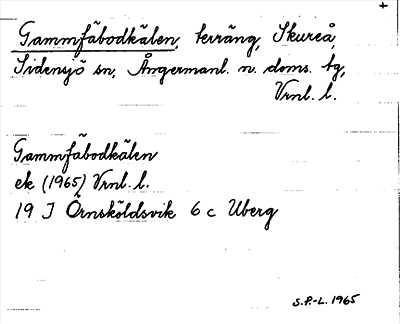 Gammfäbodkälen, terräng, Skureå,
Sidensjö sn, Ångermanl. n. doms. tg,
Vrnl. l.
Gammfäbodkälen
ek (1965) Vrnl. l.
19 J Örnsköldsvik 6 c Uberg
S.P.-L. 1965